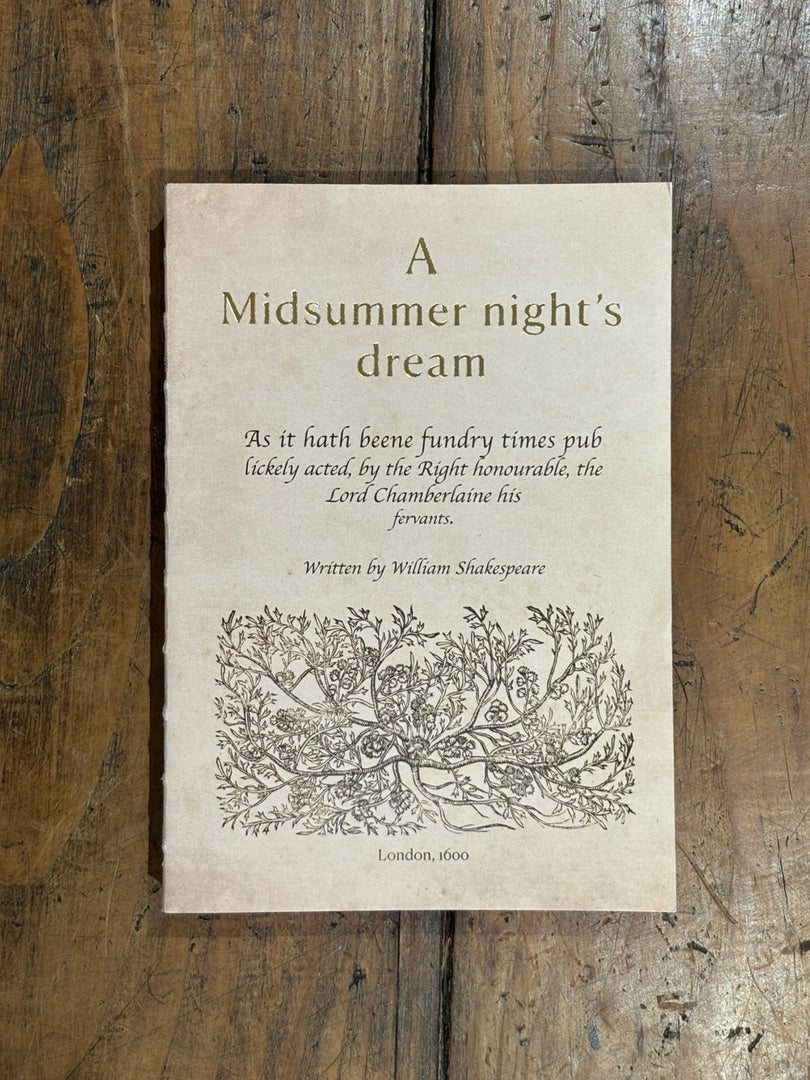 A
Midsummer night's
dream
As it hath beene fundry times pub
lickely acted, by the Right honourable, the
Lord Chamberlaine his
fervants.
Written by William Shakespeare
London, 1600